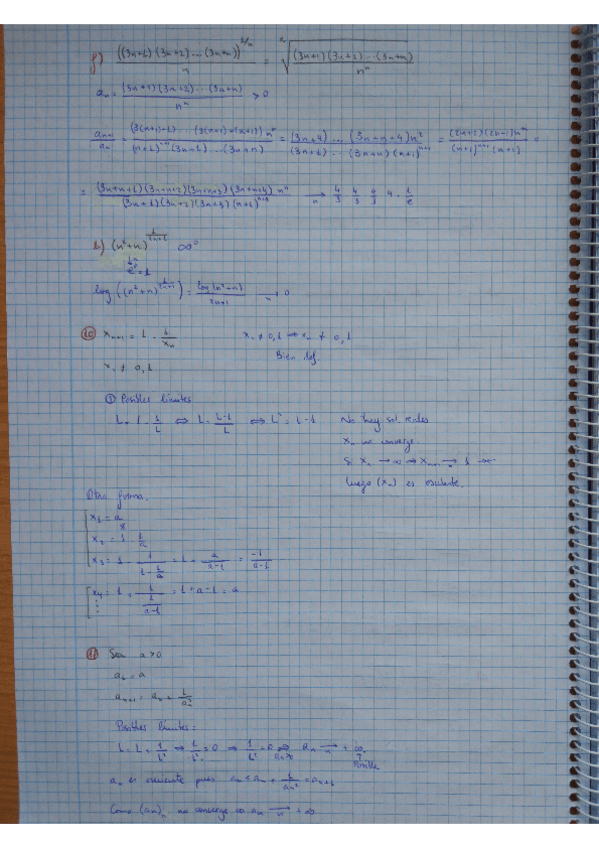 f) ((3n+1)(3n+2)...(3n+n))^{1/n} / n = \sqrt[n]{(3n+1)(3n+2)...(3n+n) / n^n}
a_n = (3n+1)(3n+2)...(3n+n) / n^n > 0
= (3n+n+1)(3n+n+2)(3n+n+3)(3n+n+4) n^n / (3n+1)(3n+2)(3n+3)(n+1)^{n+1} → 4/3 4/3 4/3 4 · 1/e
(n²+n)^{1/2n+1} ∞⁰
log((n²+n)^{1/2n+1}) = log(n²+n) / 2n+1 → 0
10 x_{n+1} = 1 - 1/x_n x_1 ≠ 0,1 ⇒ x_n ≠ 0,1
Bien def.
x_1 ≠ 0,1
① Posibles límites
L = 1 - 1/L ⇔ L = L-1/L ⇔ L² = L-1 No hay sol. reales
x_n no converge.
Si x_n → ∞ ⇒ x_{n+1} → 1
Luego (x_n) es oscilante.
Otra forma.
x_1 = a
x_2 = 1 - 1/a
x_3 = 1 - 1/(1 - 1/a) = 1 - a/a-1 = -1/a-1
x_4 = 1 + 1/(1/a-1) = 1 + a - 1 = a
⋮
11 Sea a > 0
a_1 = a
a_{n+1} = a_n + 1/a_n²
Posibles límites:
L = L + 1/L² ⇒ 1/L² = 0 ⇒ a_n → + ∞.
Posible
a_n es creciente pues a_n < a_n + 1/a_n² = a_{n+1}
Como (a_n)_n no converge ⇒ a_n → + ∞